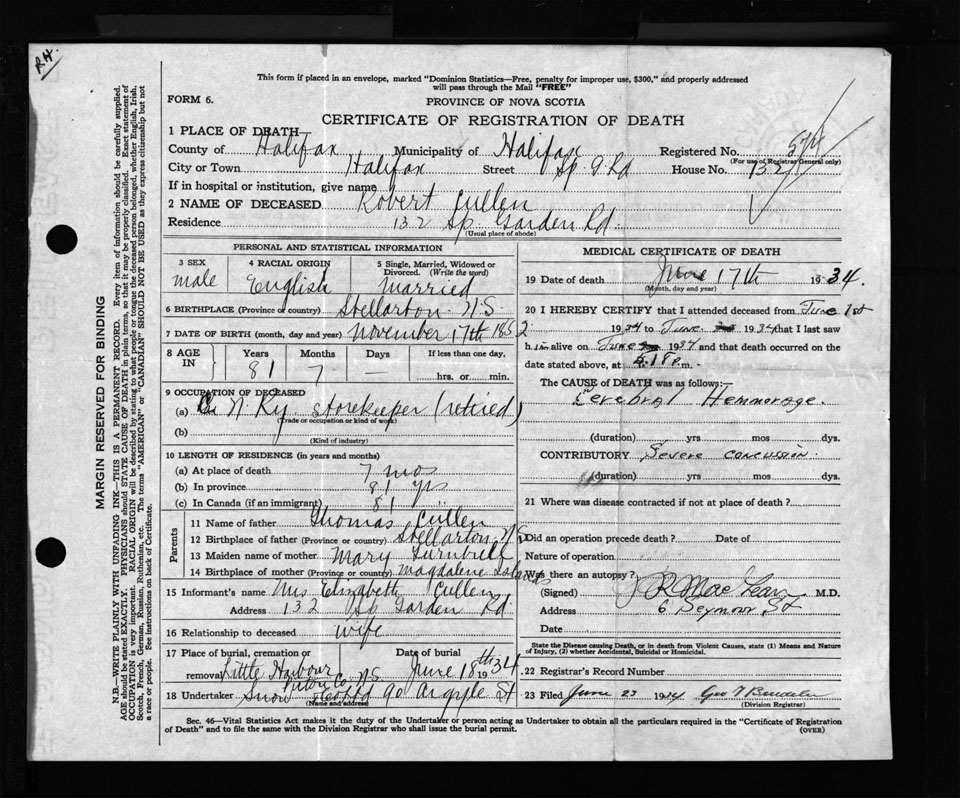 R.H.
This form if placed in an envelope, marked "Dominion Statistics—Free, penalty for improper use, $300," and properly addressed
will pass through the Mail "FREE"
FORM 6.
PROVINCE OF NOVA SCOTIA
CERTIFICATE OF REGISTRATION OF DEATH
1 PLACE OF DEATH
County of Halifax Municipality of Halifax Registered No. 574
(For use of Registrar General only)
City or Town Halifax Street Sp. G Rd House No. 132
If in hospital or institution, give name
2 NAME OF DECEASED Robert Cullen
Residence 132 Sp. Garden Rd.
(Usual place of abode)
PERSONAL AND STATISTICAL INFORMATION
3 SEX 4 RACIAL ORIGIN 5 Single, Married, Widowed or
Divorced. (Write the word)
male English married
6 BIRTHPLACE (Province or country) Stellarton N.S
7 DATE OF BIRTH (month, day and year) November 17th 1852
8 AGE IN Years Months Days If less than one day,
81 7 — hrs. or min.
9 OCCUPATION OF DECEASED
(a) C N Ry Storekeeper (retired)
(Trade or occupation or kind of work)
(b)
(Kind of industry)
10 LENGTH OF RESIDENCE (in years and months)
(a) At place of death 7 mos
(b) In province 81 yrs
(c) In Canada (if an immigrant) 81 "
Parents
11 Name of father Thomas Cullen
12 Birthplace of father (Province or country) Stellarton N.S
13 Maiden name of mother Mary Turnbull
14 Birthplace of mother (Province or country) Magdalene Islands
15 Informant's name Mrs Elizabeth Cullen
Address 132 Sp Garden Rd.
16 Relationship to deceased wife
17 Place of burial, cremation or Date of burial
removal Little Harbour June 18th 1934
Pictou Co. N.S.
18 Undertaker Snow & Co Ltd 90 Argyle St
(Name and address)
MEDICAL CERTIFICATE OF DEATH
19 Date of death June 17th 1934.
(Month, day and year)
20 I HEREBY CERTIFY that I attended deceased from June 1st
1934 to June 1934 that I last saw
him alive on June 1934 and that death occurred on the
date stated above, at 5.18 p. m.
The CAUSE of DEATH was as follows:
Cerebral Hemmorage.
(duration) yrs mos dys.
CONTRIBUTORY Severe concussion.
(duration) yrs mos dys.
21 Where was disease contracted if not at place of death?
Did an operation precede death? Date of
Nature of operation
Was there an autopsy?
(Signed) J R MacLean M.D.
Address 6 Seymour St
Date
State the Disease causing Death, or in death from Violent Causes, state (1) Means and Nature
of Injury, (2) whether Accidental, Suicidal or Homicidal.
22 Registrar's Record Number
23 Filed June 23 1934 Geo
(Division Registrar)
Sec. 46—Vital Statistics Act makes it the duty of the Undertaker or person acting as Undertaker to obtain all the particulars required in the "Certificate of Registration
of Death" and to file the same with the Division Registrar who shall issue the burial permit.
(OVER)
MARGIN RESERVED FOR BINDING
N.B.—WRITE PLAINLY WITH UNFADING INK—THIS IS A PERMANENT RECORD. Every item of information should be carefully supplied.
AGE should be stated EXACTLY. PHYSICIANS should STATE CAUSE OF DEATH in plain terms, so that it may be properly classified. Exact statement of
OCCUPATION is very important. RACIAL ORIGIN will be described by stating to what people or tongue the deceased person belonged, whether English, Irish,
Scotch, French, German, Russian, Ruthenian, etc. The terms "AMERICAN" or "CANADIAN" SHOULD NOT BE USED as they express citizenship but not
a race or people. See instructions on back of Certificate.